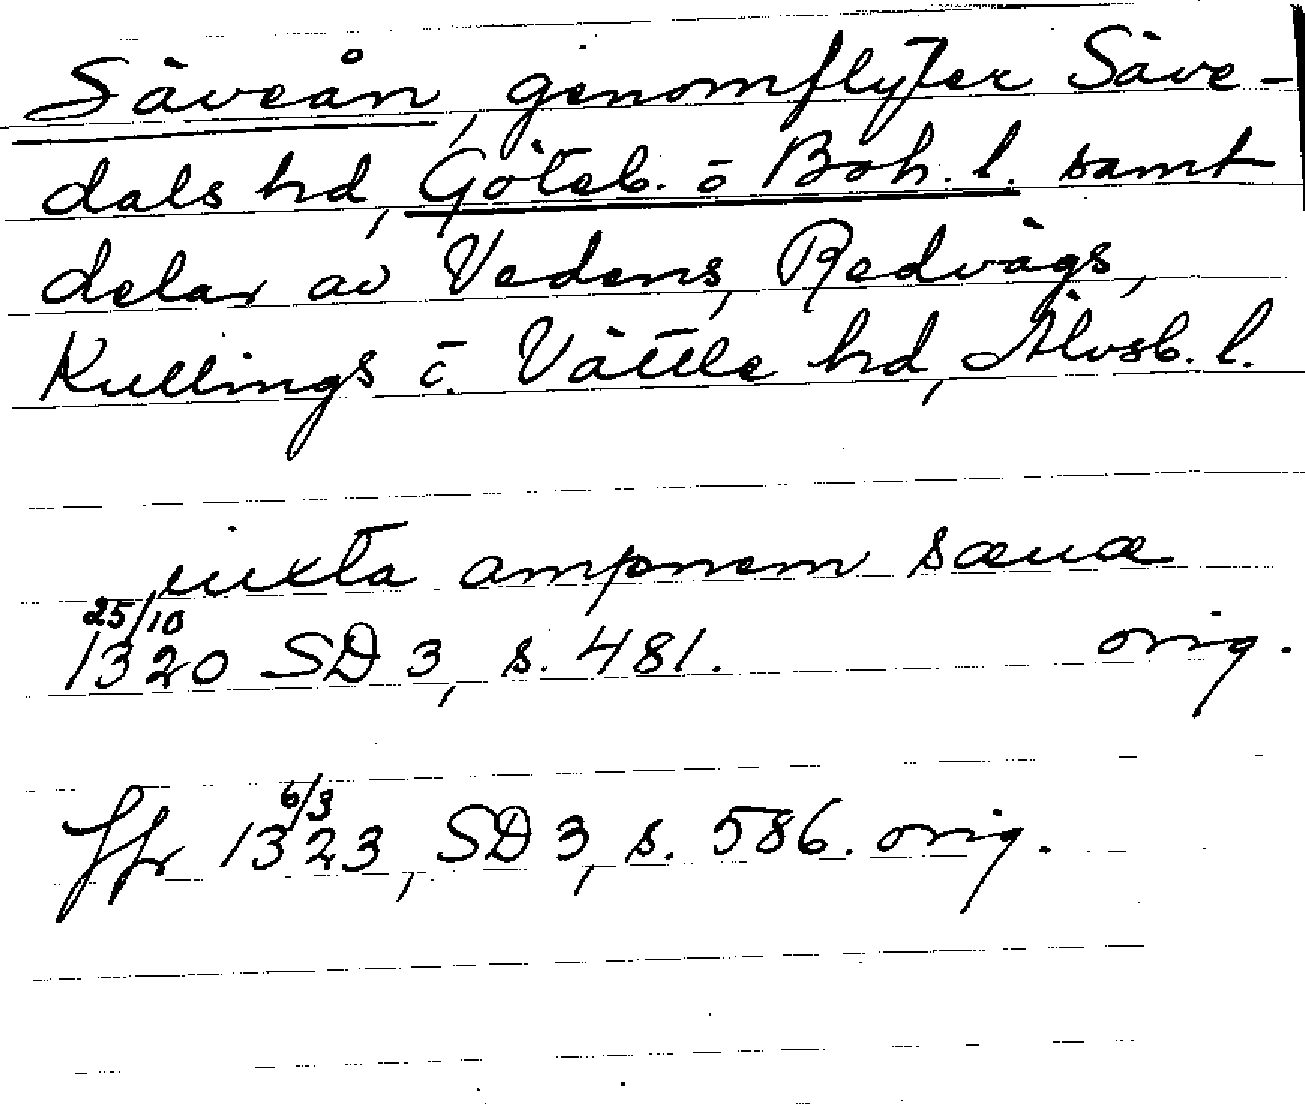 Säveån, genomflyter Säve-
dals hd, Göteb. o Boh. l. samt
delar av Vedens, Redvägs,
Kullings o. Vättle hd, Älvsb. l.
iuxta ampnem sæuæ
25/10
1320 SD 3, s. 481. orig.
6/3
Jfr 1323, SD 3, s. 586. orig.